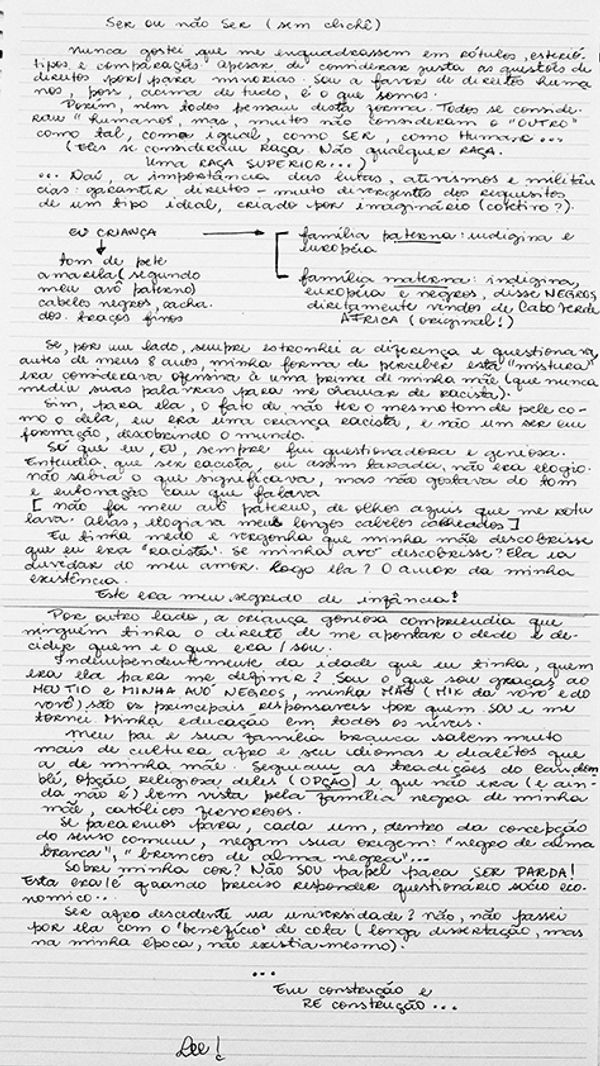 Ser ou não Ser (sem clichê)
Nunca gostei que me enquadrassem em rótulos, esterió-
tipos e comparações. Apesar de considerar justa as questões de
direitos por/para minorias. Sou a favor de direitos huma
nos, pois, acima de tudo, é o que somos.
Porém, nem todos pensam desta forma. Todos se conside-
ram "humanos", mas, muitos não consideram o "OUTRO"
como tal, como igual, como SER, como Humano...
(Eles se consideram RAÇA. Não qualquer RAÇA.
Uma RAÇA SUPERIOR...)
... Daí, a importância das lutas, ativismos e militân
cias: garantir direitos - muito divergentes dos requisitos
de um tipo ideal, criado por imaginário (coletivo?).
EU CRIANÇA
família paterna: indígina e
européia
tom de pele
amarela (segundo
meu avô paterno)
cabelos negros, cacha-
dos. traços finos
família materna: indígina,
européia e negros, disse NEGROS,
diretamente vindos de Cabo Verde
ÁFRICA (original!)
Se, por um lado, sempre estranhei a diferença e questionava,
antes de meus 8 anos, minha forma de perceber esta "mistura"
era considerava ofensiva à uma prima de minha mãe (que nunca
mediu suas palavras para me chamar de racista).
Sim, para ela, o fato de não ter o mesmo tom de pele co-
mo o dela, eu era uma criança racista, e não um ser em
formação, descobrindo o mundo.
Só que eu, EU, sempre fui questionadora e geniosa.
Entendia que ser racista, ou assim taxada, não era elogio.
não sabia o que significava, mas não gostava do tom
e entonação com que falava
[não foi meu avô paterno, de olhos azuis que me rotu
lava. Aliás, elogiava meus longos cabelos cacheados]
Eu tinha medo e vergonha que minha mãe descobrisse
que eu era "racista". Se minha avó descobrisse? Ela ia
duvidar do meu amor. Logo ela? O amor da minha
existência.
Este era meu segredo de infância!
Por outro lado, a criança geniosa compreendia que
ninguém tinha o direito de me apontar o dedo e de-
cidir quem e o que era/sou.
Independentemente da idade que eu tinha, quem
era ela para me definir? Sou o que sou graças ao
MEU TIO e MINHA AVÓ NEGROS, minha MÃE (MIX da vovó e do
vovô) são os principais responsáveis por quem sou e me
tornei. Minha educação em todos os níveis.
Meu pai e sua família branca sabem muito
mais de cultura afro e seu idiomas e dialétos que
a de minha mãe. Seguiam as tradições do Candom
blé, opção religiosa deles (OPÇÃO) e que não era (e ain-
da não é) bem vista pela família negra de minha
mãe, católicos fervorosos.
Se pararmos para, cada um, dentro da concepção
do senso comum, negam sua origem: "negro de alma
branca", "brancos de alma negra"...
Sobre minha cor? Não SOU papel para SER PARDA!
Esta era/é quando preciso responder questionário sócio eco-
nomico...
Ser afro descedente na universidade? não, não passei
por ela com o "benefício" de cota (longa dissertação, mas
na minha época, não existia mesmo).
...
Em construção e
RE construção...
Lee!